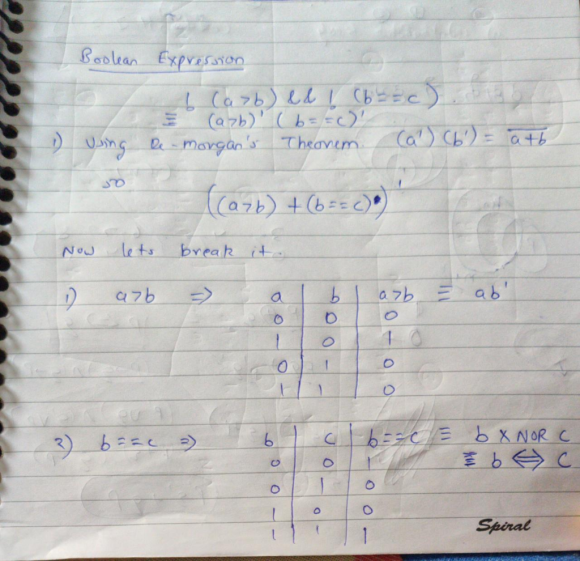 Boolean Expression
! (a>b) && ! (b==c).
≡ (a>b)' (b==c)'
1) Using De-morgan's Theorem (a') (b') = \overline{a+b}
so
((a>b) + (b==c))'
Now lets break it.
1) a>b => a b a>b ≡ ab'
0 0 0
1 0 1
0 1 0
1 1 0
2) b==c => b c b==c ≡ b XNOR c
0 0 1 ≡ b <=> c
0 1 0
1 0 0
1 1 1
Spiral